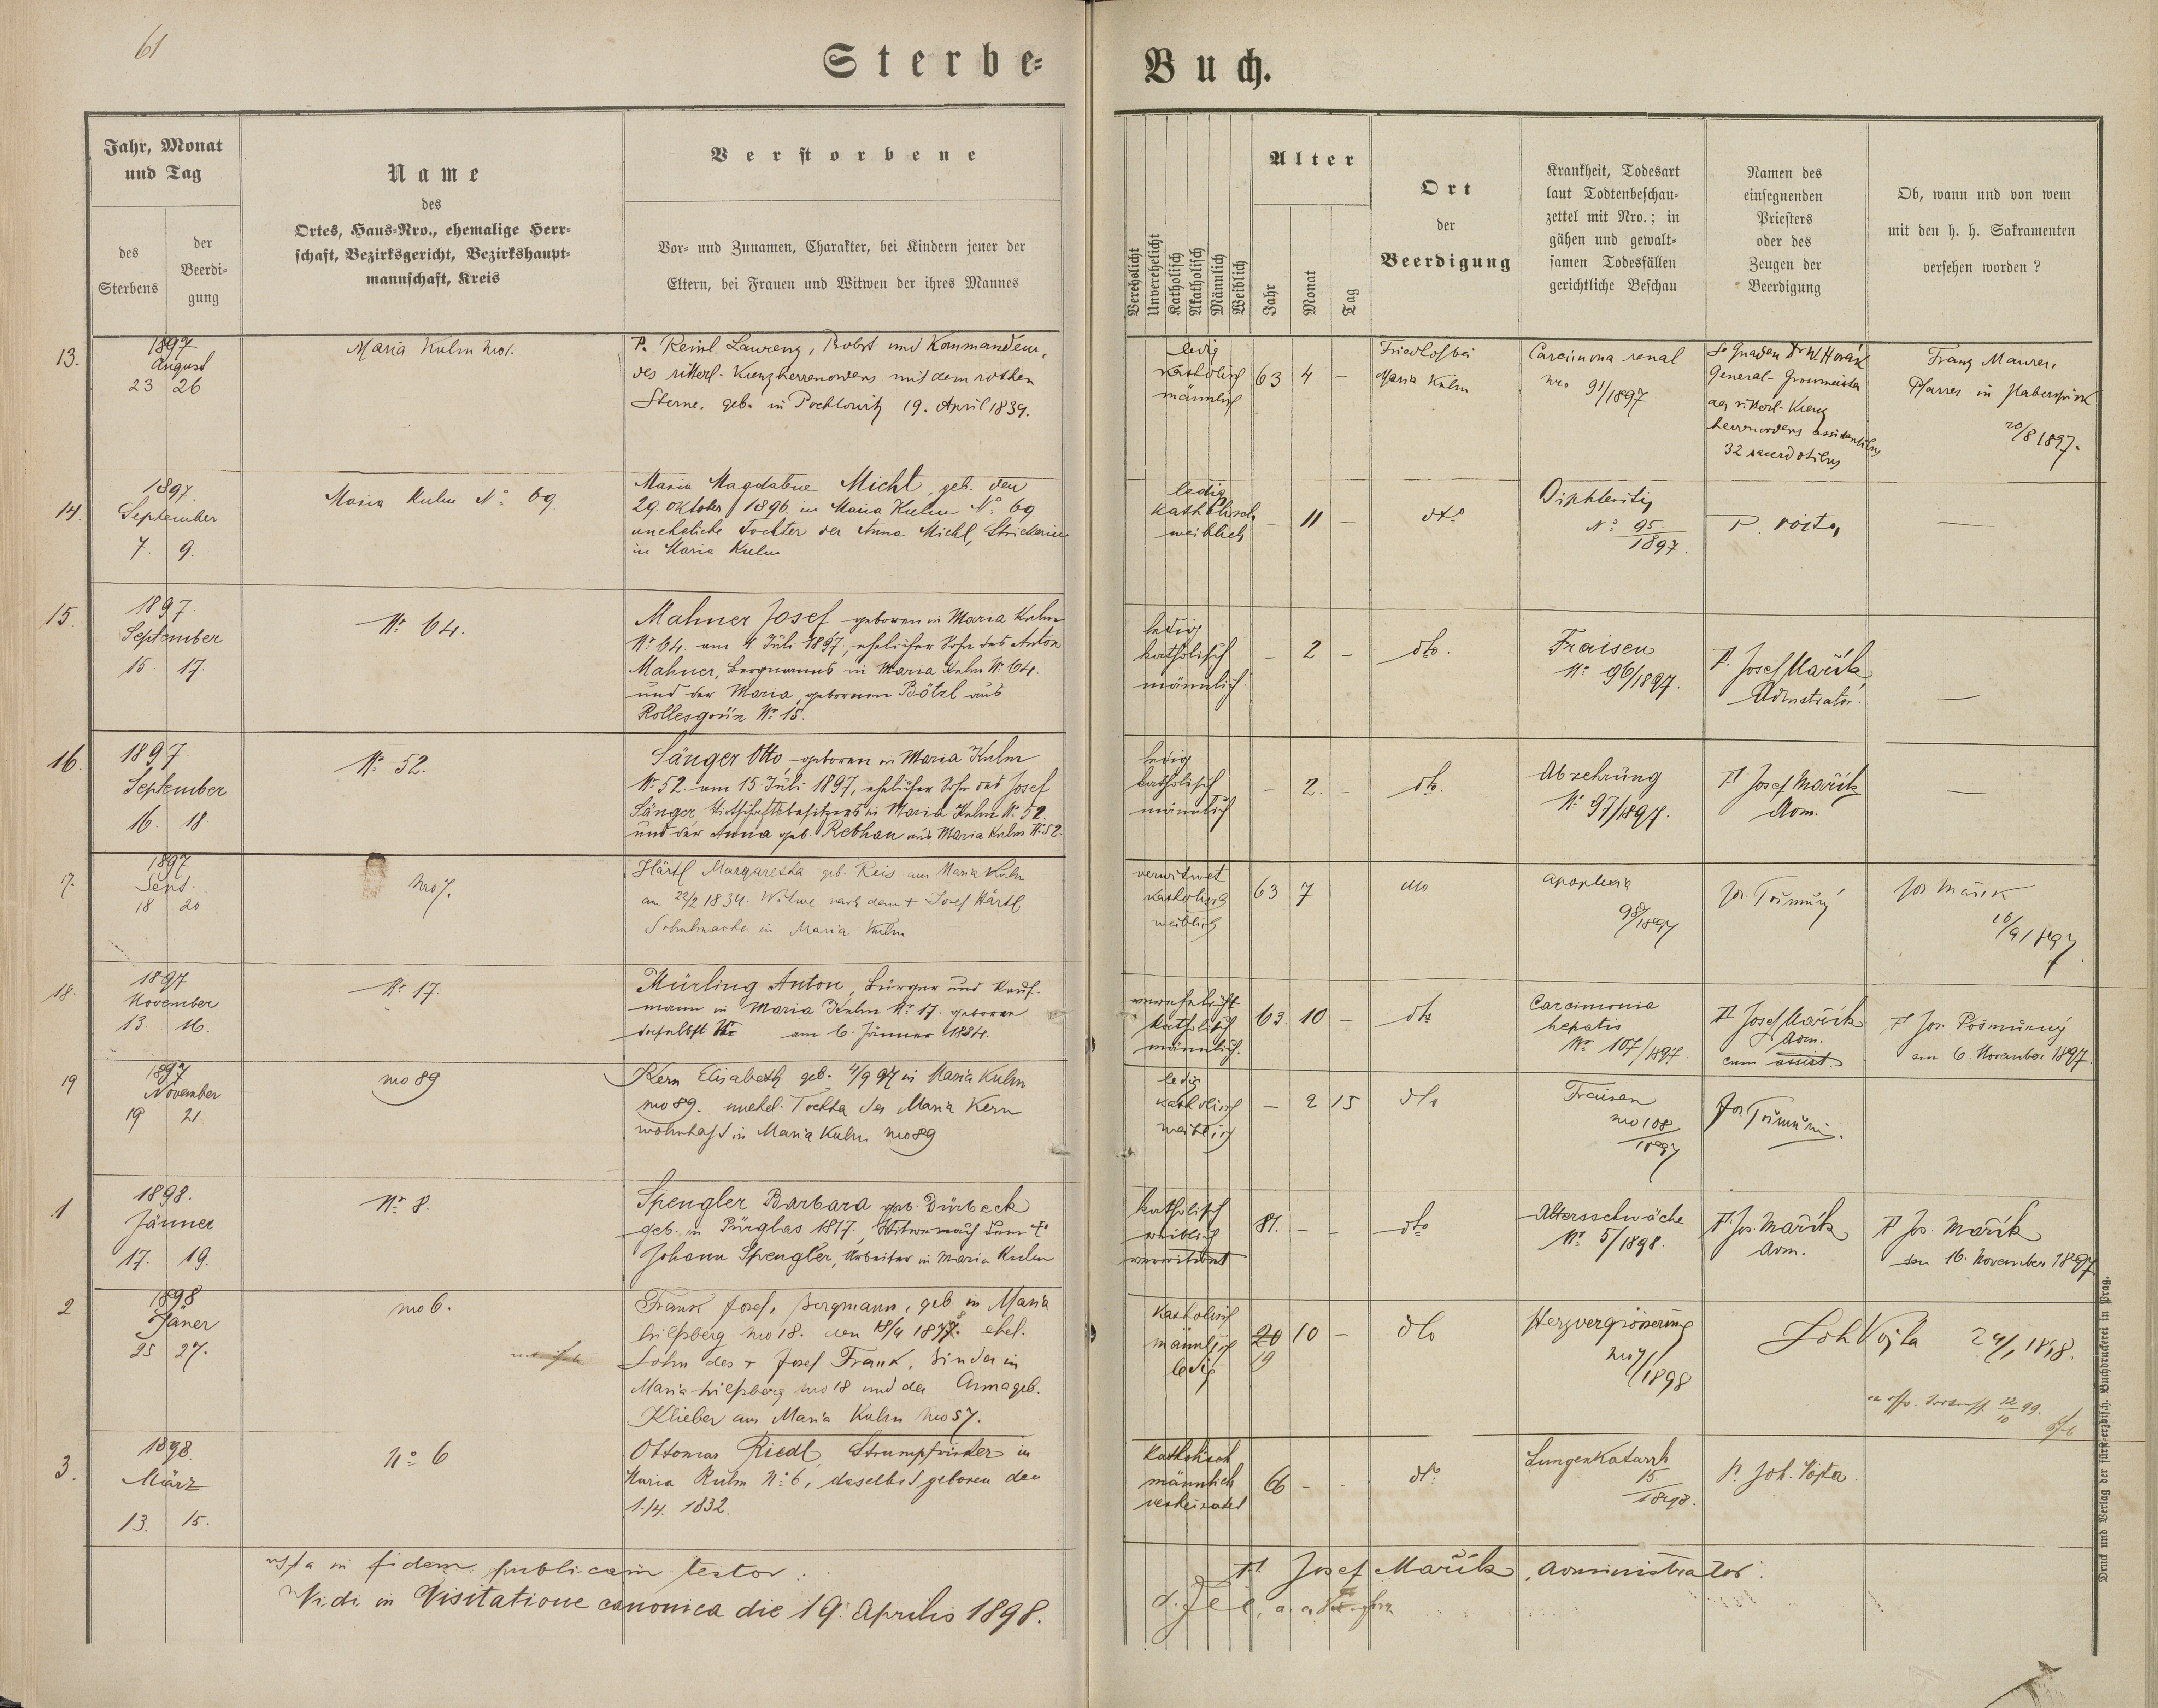 61
Sterbe-
Buch.
Jahr, Monat
und Tag
des
Sterbens
der
Beerdi-
gung
Name
des
Ortes, Haus-Nro., ehemalige Herr-
schaft, Bezirksgericht, Bezirkshaupt-
mannschaft, Kreis
Verstorbene
Vor- und Zunamen, Charakter, bei Kindern jener der
Eltern, bei Frauen und Witwen der ihres Mannes
Verehelicht
Unverehelicht
Katholisch
Akatholisch
Männlich
Weiblich
Alter
Jahr
Monat
Tag
Ort
der
Beerdigung
Krankheit, Todesart
laut Todtenbeschau-
zettel mit Nro.; in
gähen und gewalt-
samen Todesfällen
gerichtliche Beschau
Namen des
einsegnenden
Priesters
oder des
Zeugen der
Beerdigung
Ob, wann und von wem
mit den h. h. Sakramenten
versehen worden?
13.
1897
August
23 26
Maria Kulm Nro 1.
P. Reinl Laurenz, Probst und Kommandeur,
des ritterl. Kreuzherrenordens mit dem rothen
Sterne. geb. in Pochlowitz 19. April 1834.
ledig
katholisch
männlich
63 4 –
Friedhof bei
Maria Kulm
Carcinoma renal
nro 91/1897
Se Gnaden Dr W. Horák
General-Grossmeister
des ritterl-Kreuz
herrnordens assistentibus
32 sacerdotibus
Franz Maurer,
Pfarrer in Haberspirk
20/8 1897.
14.
1897.
September
7. 9.
Maria Kulm No 69
Maria Magdalene Michl, geb. den
29. Oktober 1896. in Maria Kulm No 69
uneheliche Tochter der Anna Michl, Strickerin
in Maria Kulm
ledig
katholisch
weiblich
– 11 –
dto
Diphteritis
No 95/1897.
P. Vojta
—
15.
1897.
September
15. 17.
Nr. 64.
Mahner Josef geboren in Maria Kulm
Nr. 64. am 4 Juli 1897, ehelicher Sohn des Anton
Mahner, Bergmanns in Maria Kulm Nr. 64.
und der Maria, gebornen Bötzl aus
Rollesgrün Nr. 15.
ledig
katholisch
männlich
– 2 –
dto.
Fraisen
Nr. 96/1897.
P. Josef Mařík,
Administrator.
—
16.
1897.
September
16. 18.
Nr. 52.
Sänger Otto, geboren in Maria Kulm
Nr. 52. am 15 Juli 1897, ehelicher Sohn des Josef
Sänger, Wirthschaftsbesitzers in Maria Kulm Nr. 52.
und der Anna geb. Rebhan aus Maria Kulm Nr. 52.
ledig
katholisch
männlich
– 2. –
dto.
Abzehrung
Nr. 97/1897.
P. Josef Mařík
Adm.
—
7.
1897
Sept.
18 20
Nro 7.
Härtl Margaretha geb. Reis aus Maria Kulm
am 22/2 1834. Witwe nach dem + Josef Härtl
Schuhmacher in Maria Kulm
verwitwet
katholisch
weiblich
63 7
dto
apoplexia
98/1897
Jos. Pošmůrný
Jos Mařík
16/9 1897
18.
1897
November
13. 16.
Nr. 17.
Mürling Anton, Bürger und Kauf-
mann in Maria Kulm Nr. 17. geboren
daselbst Nr am 6. Jänner 1834.
verehelicht
katholisch
männlich.
63. 10 –
dto
Carcimonia
hepatis
Nr. 107/1897.
P. Josef Mařík
Adm.
cum assist.
P. Jos. Pošmůrný
am 6. November 1897.
19
1897
November
19 21.
nro 89
Kern Elisabeth geb. 4/9 97 in Maria Kulm
nro 89. unehel. Tochter der Maria Kern
wohnhaft in Maria Kulm nro 89
ledig
katholisch
weiblich
– 2 15
dto
Fraisen
nro 108/1897
Jos Pošmůrný.
1
1898.
Jänner
17. 19.
Nr. 8.
Spengler Barbara geb. Dürbeck
geb. in Pürglas 1817, Witwe nach dem +
Johann Spengler, Arbeiter in Maria Kulm
katholisch
weiblich
verwitwet
81. – –
dto
Altersschwäche
Nr. 5/1898.
P. Jos. Mařík
Adm.
P. Jos. Mařík
den 16. November 1897.
2
1898
Jäner
25 27.
nro 6.
Frank Josef, Bergmann, geb. in Maria
hilfsberg nro 18. den 18/4 1878. ehel.
Sohn des + Josef Frank, Binder in
Maria-hilfsberg nro 18 und der Anna geb.
Klieber aus Maria Kulm Nro 57.
katholisch
männlich
ledig
20 10 –
19
dto
Herzvergrösserung
nro 7/1898
Joh Vojta 24/1 1898.
12/10 99.
3.
1898.
März
13. 15.
No 6
Ottomar Riedl, Strumpfwirker in
Maria Kulm No 6, daselbst geboren den
1./4. 1832.
katholisch
männlich
verheiratet
66 – .
dto
Lungenkatarrh
15./1898.
P. Joh. Vojta.
Ista in fidem publicam testor:
P. Josef Mařík, Administrator.
Vidi in Visitatione canonica die 19. Aprilis 1898.
Druck und Verlag der fürst-erzbisch. Buchdruckerei in Prag.